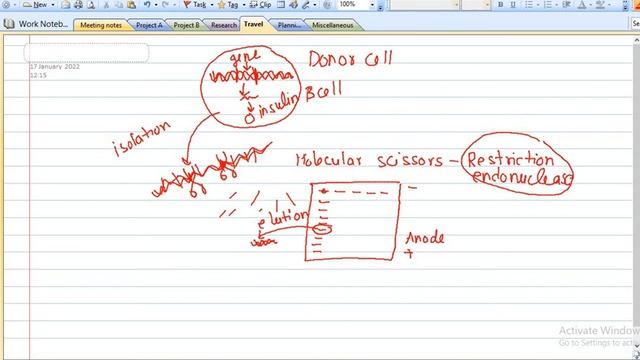 Task
Tag
100%
Work Noteb...
Meeting notes
Project A
Project B
Research
Travel
Planni...
Miscellaneous
17 January 2022
12:15
gene
Donor cell
insulin
B cell
isolation
Molecular scissors - Restriction
endonuclease
elution
Anode
+
Activate Window
Go to Settings to acti